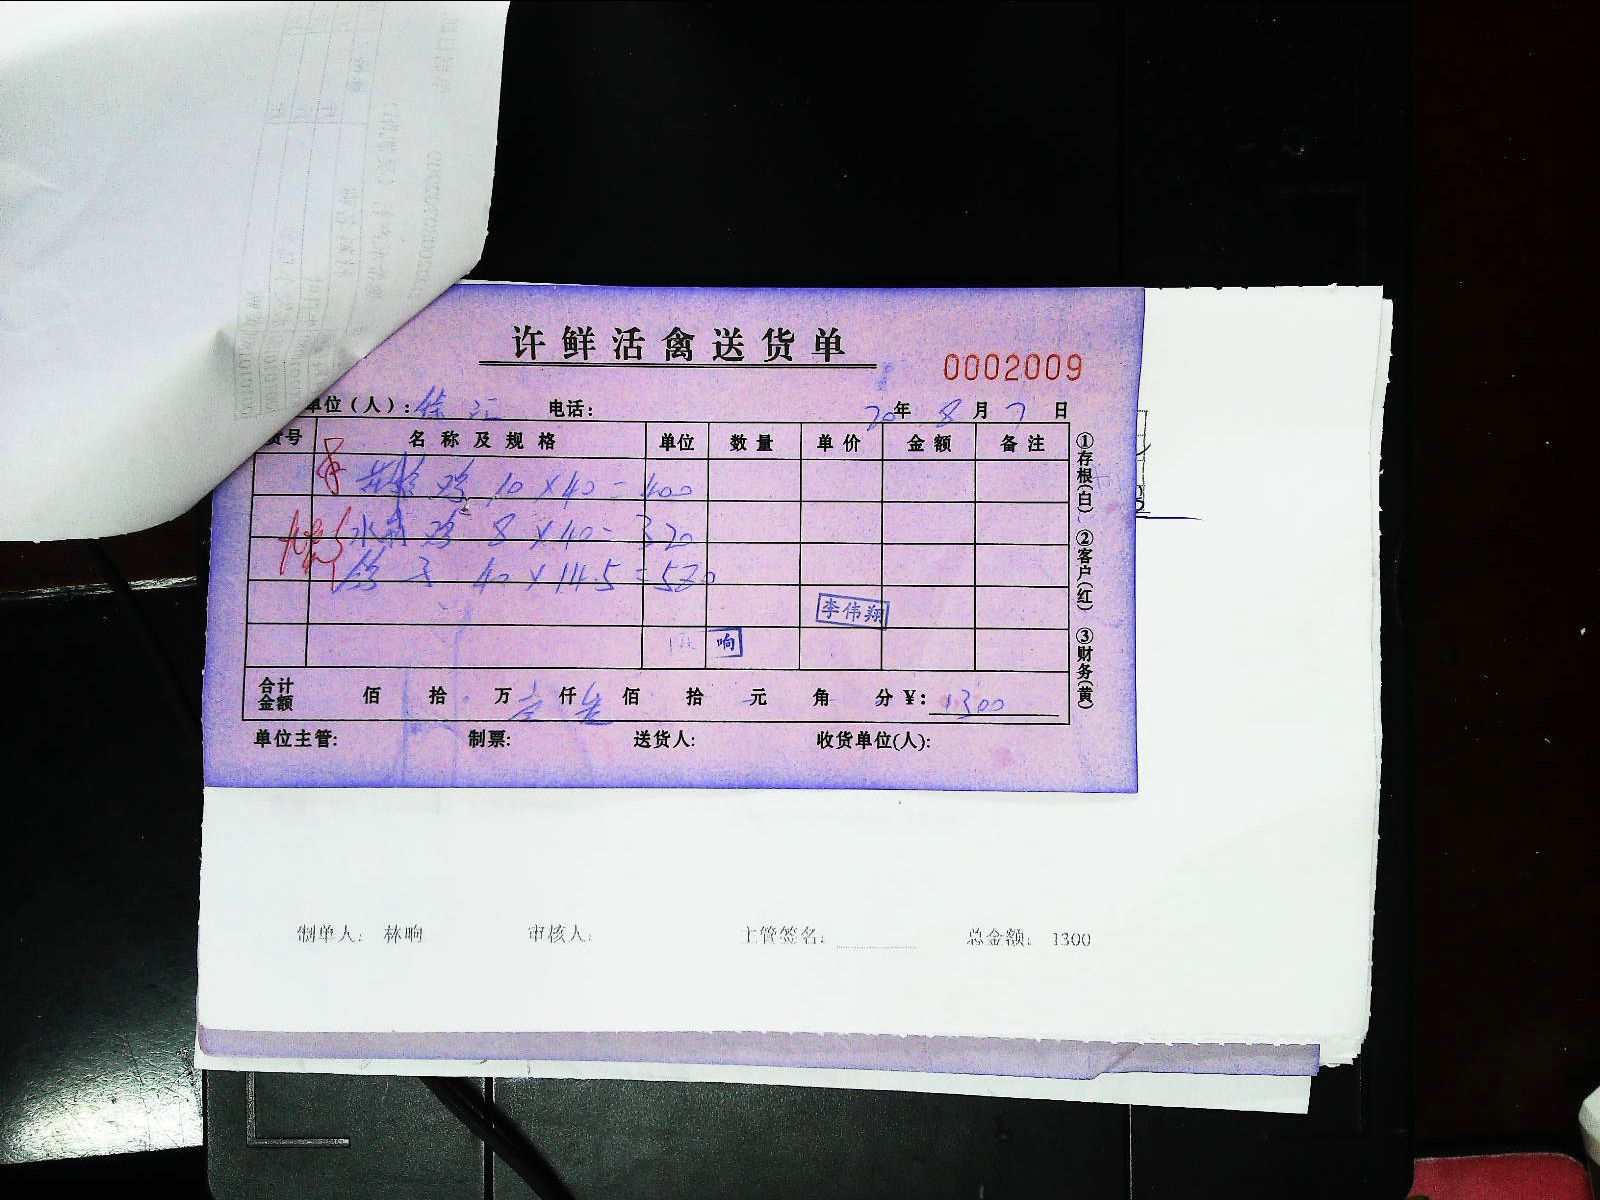 许鲜活禽送货单
0002009
单位(人): 电话: 20年 8月 7日
货号 名称及规格 单位 数量 单价 金额 备注
鸡 10×40=400
水 鸡 8×40=320
鸽子 40×14.5=580
李伟翔
响
合计金额 佰 拾 万 仟 佰 拾 元 角 分 ¥: 1300
单位主管: 制票: 送货人: 收货单位(人):
①存根(白) ②客户(红) ③财务(黄)
制单人: 林响 审核人: 主管签名: 总金额: 1300